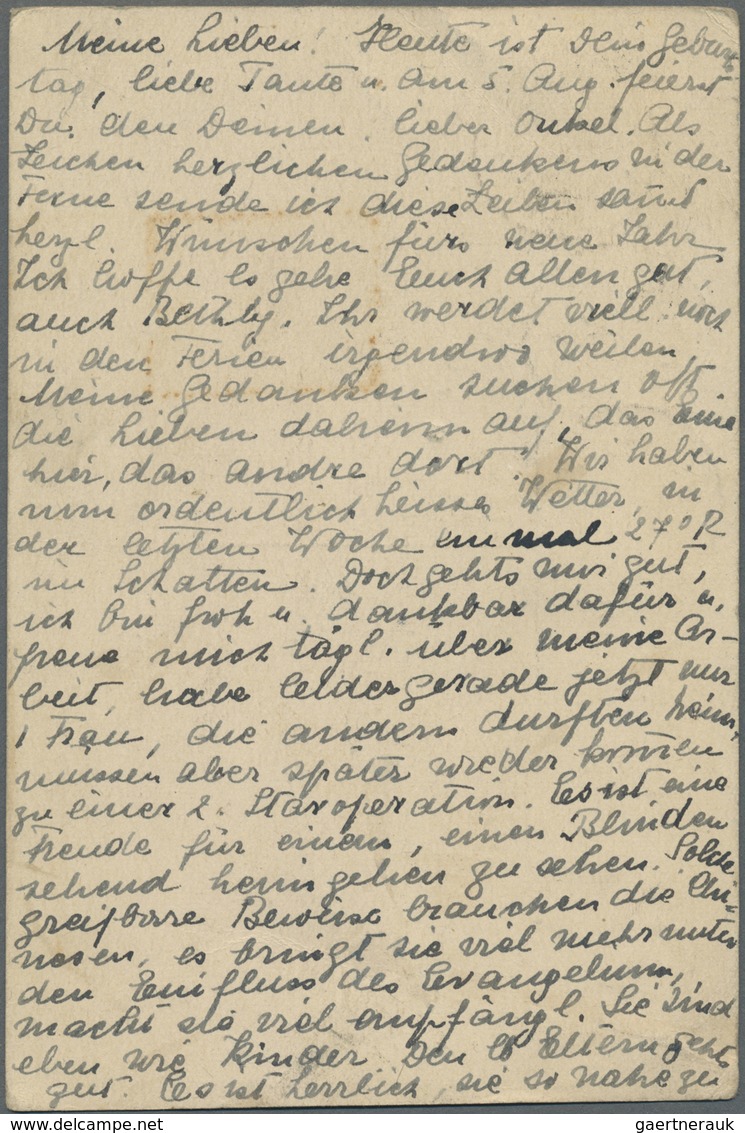 Meine Lieben! Heute ist Dein Geburts
tag, liebe Tante u. am 5. Aug. feierst
Du den Deinen, lieber Onkel. Als
Zeichen herzlichen Gedenkens in der
Ferne sende ich diese Zeilen samt
herzl. Wünschen fürs neue Jahr
Ich hoffe es gehe Euch allen gut,
auch Bethly. Ihr werdet viell. noch
in den Ferien irgendwo weilen.
Meine Gedanken suchen oft
die Lieben daheim auf, das eine
hier, das andre dort. Wir haben
nun ordentlich heisses Wetter, in
der letzten Woche einmal 27° R
im Schatten. Doch gehts mir gut,
ich bin froh u. dankbar dafür u.
freue mich tägl. über meine Ar-
beit, habe leider gerade jetzt nur
1 Frau, die andern durften heim,
müssen aber später wieder kommen
zu einer 2. Staroperation. Es ist eine
Freude für einen, einen Blinden
sehend heimgehen zu sehen. Solche
greifbare Beweise brauchen die Chi-
nesen, es bringt sie viel mehr unter
den Einfluss des Evangelium,
macht sie viel empfängl. Sie sind
eben wie Kinder. Den lb Eltern gehts
gut. Es ist herrlich, sie so nahe zu
gaertnerauk